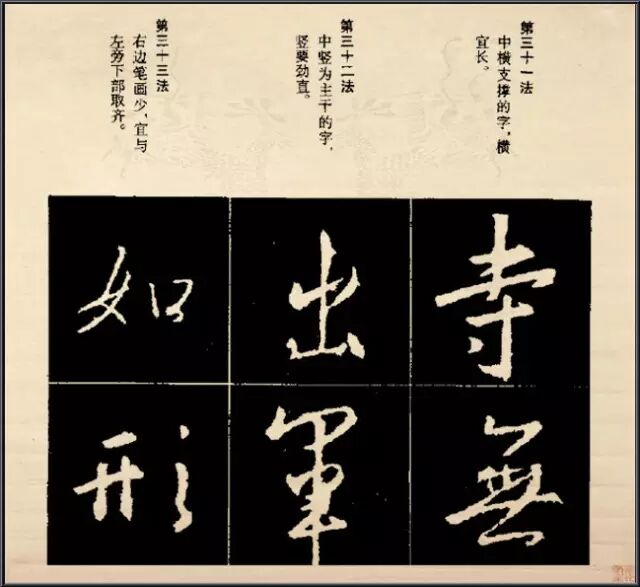 第三十一法
中横支撑的字，横
宜长。
第三十二法
中竖为主干的字，
竖要劲直。
第三十三法
右边笔画少，宜与
左旁下部取齐。
寺
無
出
軍
如
形